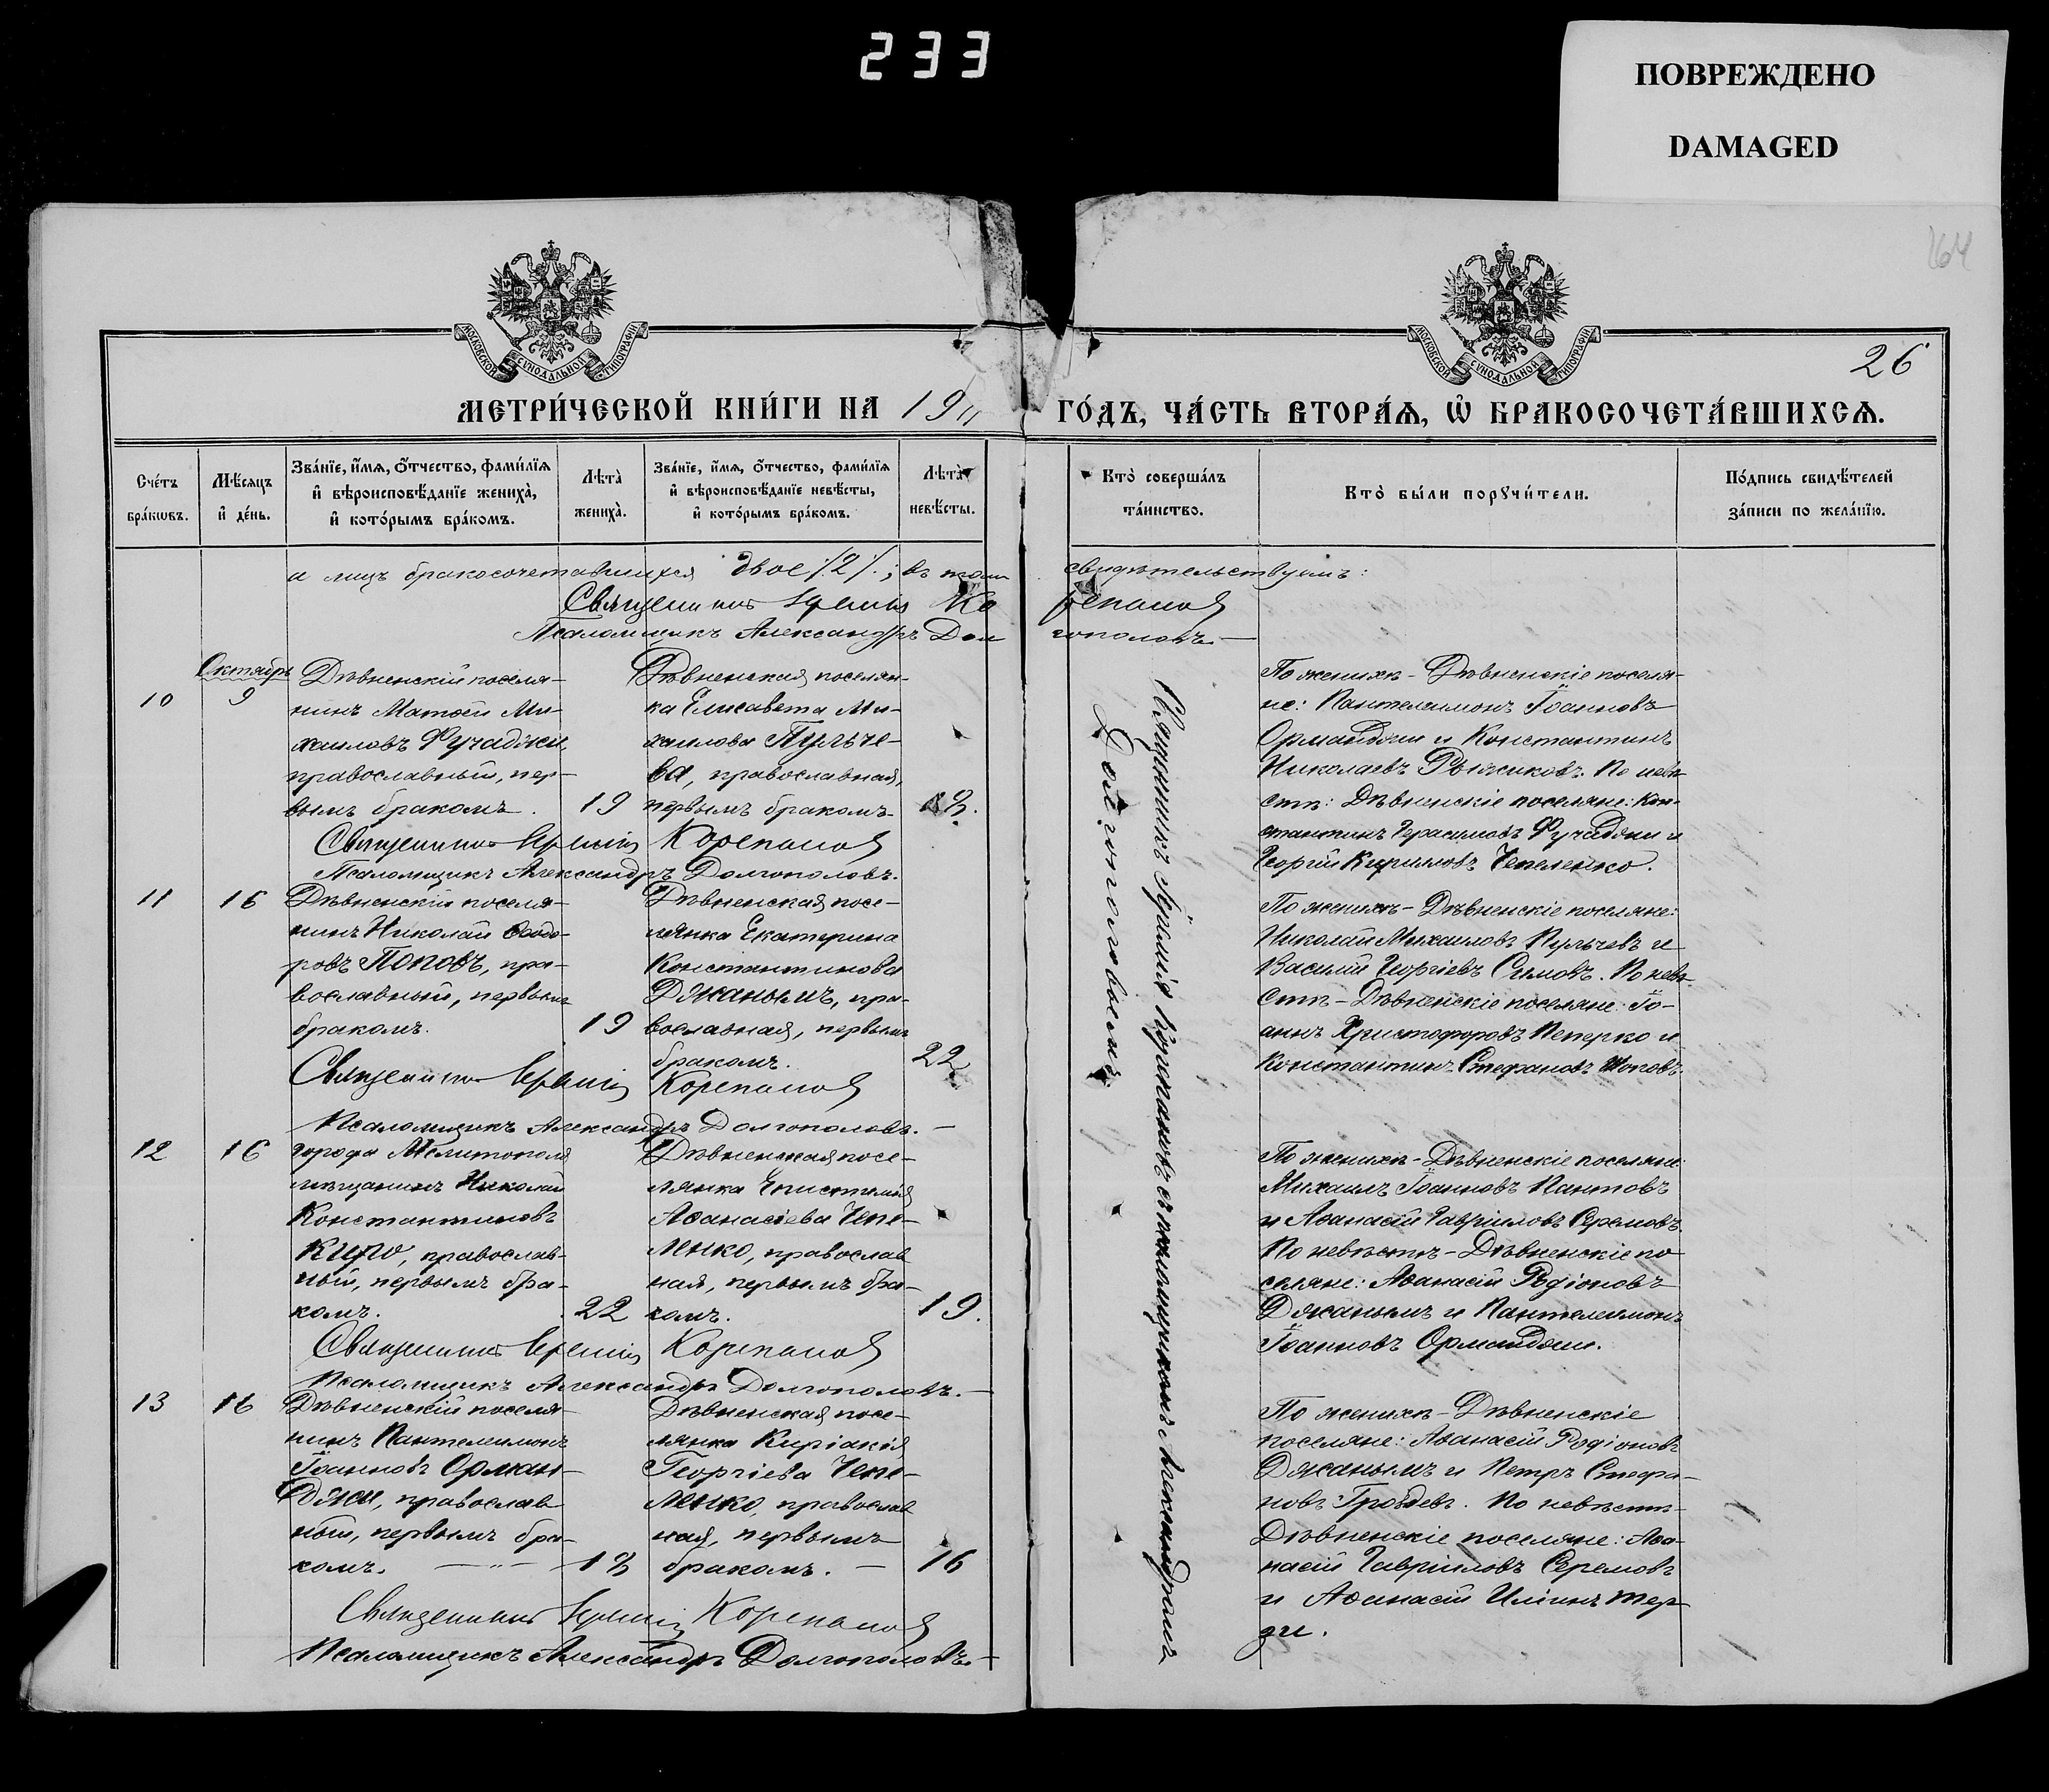 233
ПОВРЕЖДЕНО
DAMAGED
164
МОСКОВСКОЙ СѴНОДАЛЬНОЙ ТИПОГРАФІИ
МОСКОВСКОЙ СѴНОДАЛЬНОЙ ТИПОГРАФІИ
26
МЕТРИ́ЧЕСКОЙ КНИ́ГИ НА 1911
ГО́ДЪ, ЧА́СТЬ ВТОРА́Ѧ, Ѡ҆ БРАКОСОЧЕТА́ВШИХСѦ.
Сче́тъ бра́кѡвъ.
Мѣ́сяцъ и҆ де́нь.
Зва́нїе, и҆́мѧ, ѻ҆́тчество, фами́лїѧ и҆ вѣроисповѣ́данїе жениха̀, и҆ кото́рымъ бра́комъ.
Лѣ́та жениха̀.
Зва́нїе, и҆́мѧ, ѻ҆́тчество, фами́лїѧ и҆ вѣроисповѣ́данїе невѣ́сты, и҆ кото́рымъ бра́комъ.
Лѣ́та невѣ́сты.
Кто̀ соверша́лъ та́инство.
Кто̀ бы́ли порꙋчи́тели.
По́дпись свидѣ́телей за́писи по жела́нїю.
а лицъ бракосочетавшихся двое /2/.; въ томъ свидѣтельствуемъ:
Священникъ Іеремія Корепанов
Псаломщикъ Александръ Долгополовъ.
Октябрь
10
9
Дѣвненскій поселя-
нинъ Матѳей Ми-
хаиловъ Фучаджи
православный, пер-
вымъ бракомъ.
19
Дѣвненская поселян-
ка Елисавета Ми-
хаилова Пульче-
ва, православная,
первымъ бракомъ.
18.
По женихѣ - Дѣвненскіе поселя-
не: Пантелеимонъ Іоанновъ
Орманджи и Константинъ
Николаевъ Рыжиковъ. По невѣ-
стѣ: Дѣвненскіе поселяне: Кон-
стантинъ Герасимовъ Фучаджи и
Георгій Кирилловъ Чепеленко.
Священникъ Іеремія Корепанов
Псаломщикъ Александръ Долгополовъ.
11
16
Дѣвненскій поселя-
нинъ Николай Ѳеодо-
ровъ Поповъ, пра-
вославный, первымъ
бракомъ.
19
Дѣвненская посе-
лянка Екатерина
Константинова
Джанымъ, пра-
вославная, первымъ
бракомъ.
22
По женихѣ - Дѣвненскіе поселяне:
Николай Михаиловъ Пульчевъ и
Василій Георгіевъ Симовъ. По невѣ-
стѣ - Дѣвненскіе поселяне: Іо-
аннъ Христофоровъ Пеперко и
Константинъ Стефановъ Поповъ.
Священникъ Іеремія Корепанов
Псаломщикъ Александръ Долгополовъ.
12
16
города Мелитополя
мѣщанинъ Николай
Константиновъ
Киро, православ-
ный, первымъ бра-
комъ.
22
Дѣвненская посе-
лянка Епистимія
Аѳанасіева Чепе-
ленко, православ
ная, первымъ бра-
комъ.
19.
По женихѣ - Дѣвненскіе поселяне
Михаилъ Іоанновъ Пантовъ
и Аѳанасій Гавріиловъ Серемовъ.
По невѣстѣ - Дѣвненскіе по
селяне: Аѳанасій Родіоновъ
Джанымъ и Пантелеимонъ
Іоанновъ Орманджи.
Священникъ Іеремія Корепанов
Псаломщикъ Александръ Долгополовъ.
13
16
Дѣвненскій поселя-
нинъ Пантелеимонъ
Іоанновъ Орман-
джи, православ
ный, первымъ бра-
комъ.
18
Дѣвненская посе-
лянка Киріакія
Георгіева Чепе-
ленко, православ
ная, первымъ
бракомъ.
16
По женихѣ - Дѣвненскіе
поселяне: Аѳанасій Родіоновъ
Джанымъ и Петръ Стефа-
новъ Гроздевъ. По невѣстѣ -
Дѣвненскіе поселяне: Аѳа-
насій Гавріиловъ Серемовъ
и Аѳанасій Илiинъ Тер-
зи.
Священникъ Іеремія Корепанов
Псаломщикъ Александръ Долгополовъ.
Священникъ Іеремія Корепановъ съ псаломщикомъ Александромъ
Долгополовымъ.